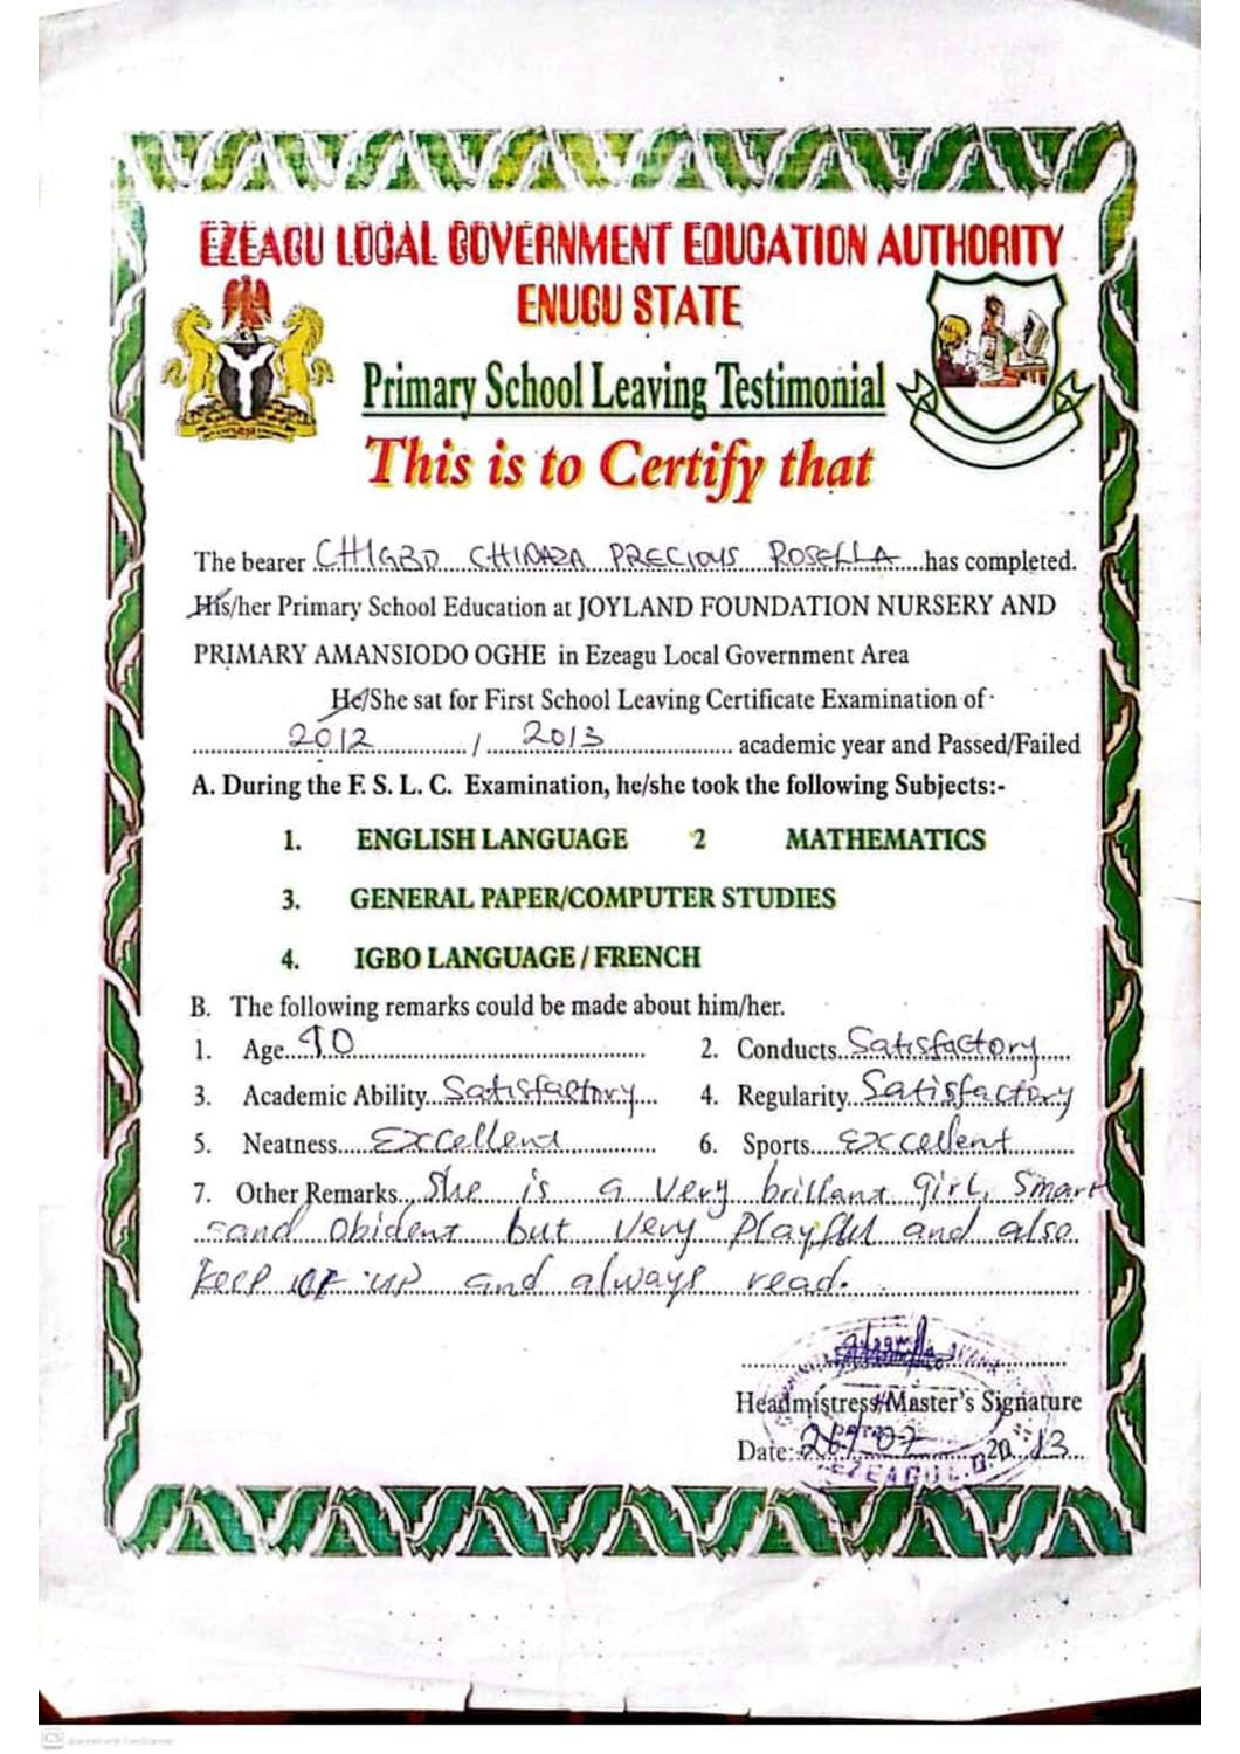 EZEAGU LOCAL GOVERNMENT EDUCATION AUTHORITY
ENUGU STATE
Primary School Leaving Testimonial
This is to Certify that
The bearer CHIGBO CHIDAZA PRECIOUS ROSELLA has completed.
His/her Primary School Education at JOYLAND FOUNDATION NURSERY AND
PRIMARY AMANSIODO OGHE in Ezeagu Local Government Area
He/She sat for First School Leaving Certificate Examination of
2012 / 2013 academic year and Passed/Failed
A. During the F. S. L. C. Examination, he/she took the following Subjects:-
1. ENGLISH LANGUAGE 2 MATHEMATICS
3. GENERAL PAPER/COMPUTER STUDIES
4. IGBO LANGUAGE / FRENCH
B. The following remarks could be made about him/her.
1. Age 10 2. Conducts Satisfactory
3. Academic Ability Satisfactory 4. Regularity Satisfactory
5. Neatness Excellent 6. Sports Excellent
7. Other Remarks She is a very brillant girl, Smart
and obident but very Playful and also
keep it up and always read.
Headmistress/Master's Signature
Date: 26/07 2013
EZEAGU L.G.
CS Scanned with CamScanner